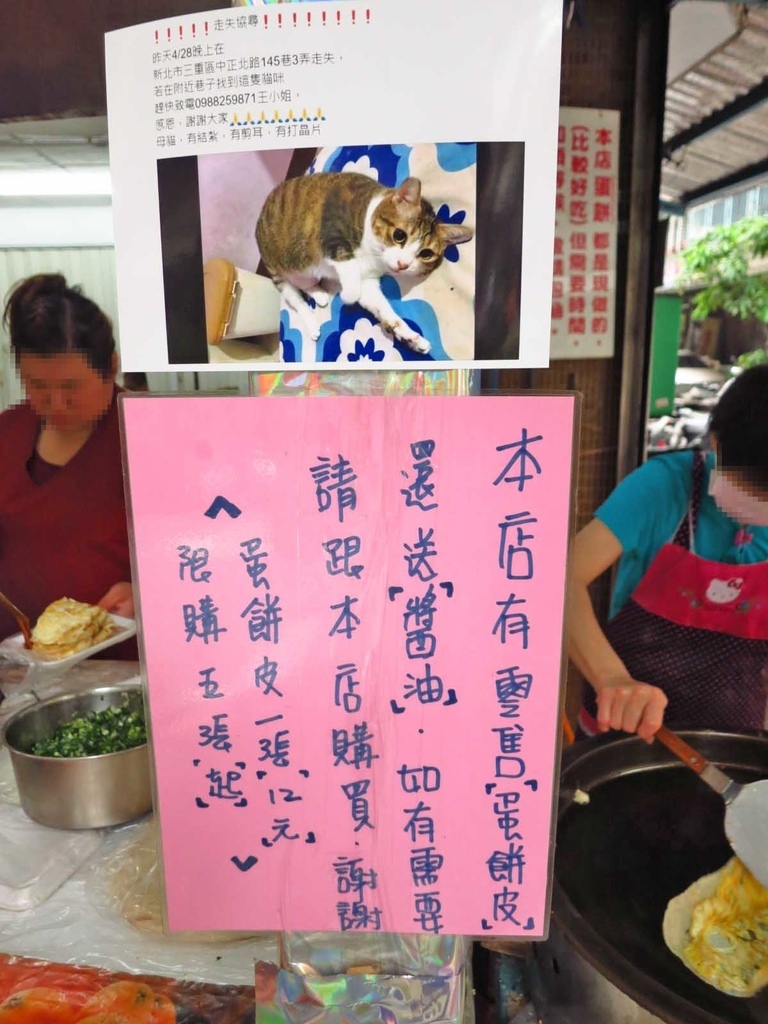 ❗❗❗❗❗走失協尋❗❗❗❗❗❗❗❗
昨天4/28晚上在
新北市三重區中正北路145巷3弄走失，
若在附近巷子找到這隻貓咪
趕快致電0988259871王小姐，
感恩，謝謝大家🙏🙏🙏🙏🙏🙏🙏🙏
母貓，有結紮，有剪耳，有打晶片
本店蛋餅都是現做的
(比較好吃)但需要時間，
本店有零售「蛋餅皮」
還送「醬油」．如有需要
請跟本店購買．謝謝
〈蛋餅皮一張「12元」
限購五張「起」〉